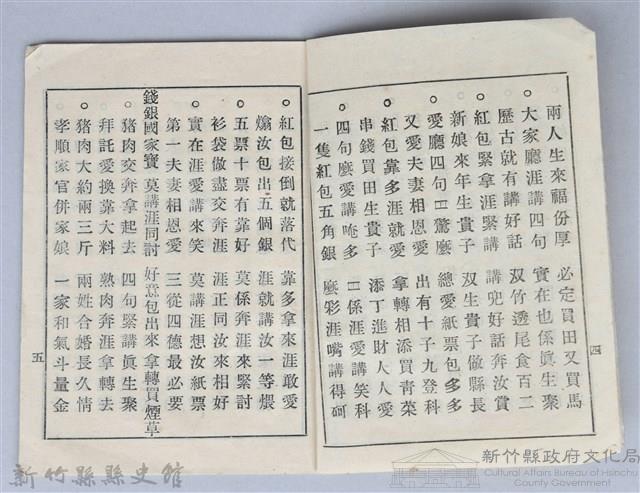 兩人生來福份厚 必定買田又買馬
大家廳涯講四句 實在也係眞生聚
歷古就有講好話 双竹透尾食百二
紅包緊拿涯緊講 講兜好話奔汝賞
新娘來年生貴子 双生貴子做縣長
愛廳四句 驚麼 總愛紙票包多多
又愛夫妻相恩愛 出有十子九登科
紅包靠多涯就愛 拿轉相添買青菜
串錢買田生貴子 添丁進財人人愛
四句麼愛講唵多 係涯愛講笑科
一隻紅包五角銀 麼彩涯嘴講得
四
紅包接倒就落代 靠多拿來涯敢愛
汝包出五個銀 涯就講汝一等煨
五票十票有靠好 莫係奔涯來緊討
衫袋做盡交奔涯 涯正同汝來相好
實在涯愛講來笑 莫講涯想汝紙票
第一夫妻相恩愛 三從四德最必要
錢銀國家寶 莫講涯同討 好意包出來 拿轉買煙草
豬肉交奔拿起去 四句緊講眞生聚
拜託愛換靠大料 熟肉奔涯拿轉去
豬肉大約兩三斤 兩姓合婚長久情
孝順家官併家娘 一家和氣斗量金
五
新竹縣縣史館
新竹縣政府文化局
Cultural Affairs Bureau of Hsinchu
County Government